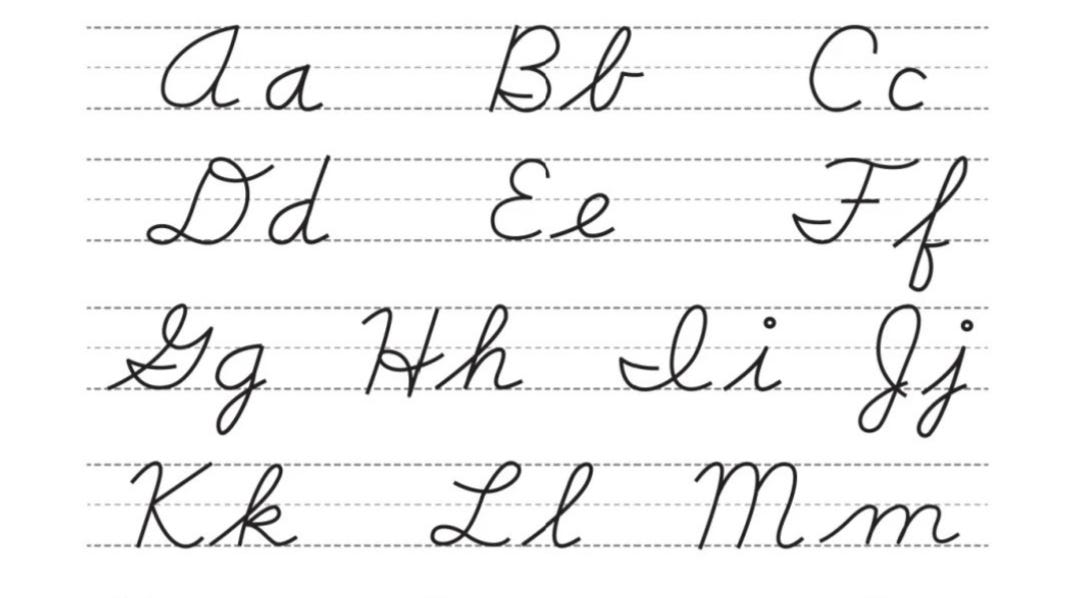 Aa Bb Cc
Dd Ee Ff
Gg Hh Ii Jj
Kk Ll Mm